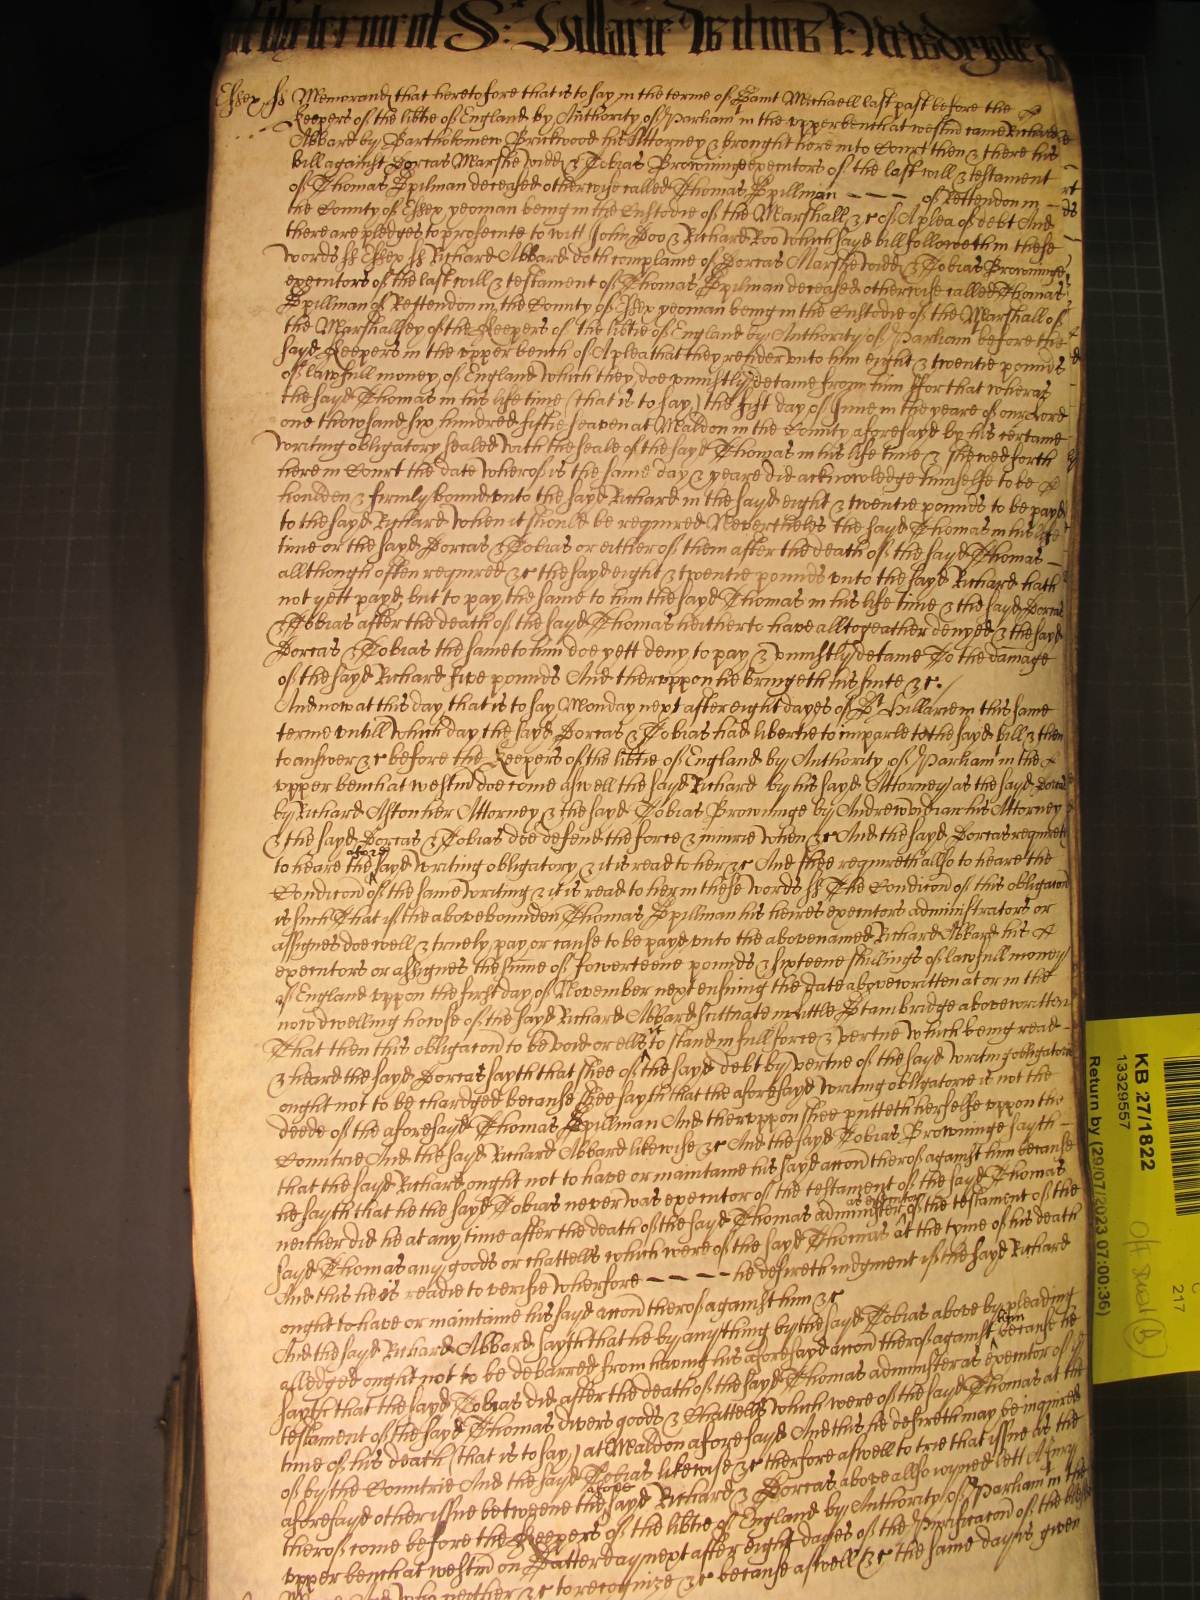 S: Hillarie
Essex ss Memorand that heretofore that is to say in the terme of Saint Michaell last past before the
Keepers of the libtie of England by Authority of Parliam in the upper bench at westm came Richard
Abbard by Bartholomew Brickwood his Attorney & brought here into Court then & there his
bill against Dorcas Marshe widd & Tobias Browninge executors of the last will & testament
of Thomas Spilman deceased otherwise called Thomas Spillman ——— of Rettendon in
the County of Essex yeoman being in the Custodie of the Marshall &c of A plea of debt And
there are pledges to prosecute to witt John Doo & Richard Roo Which sayd bill followeth in these
words ss Essex ss Richard Abbard doth complaine of Dorcas Marshe widd & Tobias Browninge
executors of the last will & testament of Thomas Spilman deceased otherwise called Thomas
Spillman of Rettendon in the County of Essex yeoman being in the Custodie of the Marshall of
the Marshallsey of the Keepers of the libtie of England by Authority of Parliam before the
sayd Keepers in the upper bench of A plea that they render unto him eight & twentie pounds
of lawfull money of England Which they doe uniustly detaine from him ffor that wheras
the sayd Thomas in his life time (that is to say) the first day of June in the yeare of our Lord
one thowsand six hundred fiftie seaven at Maldon in the County aforesayd by his certaine
writing obligatory sealed with the seale of the sayd Thomas in his life time & shewed forth
here in Court the date wherof is the same day & yeare did acknowledge himselfe to be
houlden & firmly bound unto the sayd Richard in the sayd eight & twentie pounds to be payd
to the sayd Richard When it should be required Nevertheles the sayd Thomas in his life
time or the sayd Dorcas & Tobias or either of them after the death of the sayd Thomas
allthough often required &c the sayd eight & twentie pounds unto the sayd Richard hath
not yett payd but to pay the same to him the sayd Thomas in his life time & the sayd Dorcas
& Tobias after the death of the sayd Thomas heitherto have alltogeather denyed & the sayd
Dorcas & Tobias the same to him doe yett deny to pay & uniustly detaine To the damage
of the sayd Richard five pounds And theruppon he bringeth his suite &c.
And now at this day that is to say Monday next after eight dayes of St Hillarie in this same
terme untill Which day the sayd Dorcas & Tobias had libertie to imparle to the sayd bill & then
to answer &c before the Keepers of the libtie of England by Authority of Parliam in the
upper bench at westm doe come aswell the sayd Richard by his sayd Attorney as the sayd Dorcas
by Richard Aston her Attorney & the sayd Tobias Browninge by Andrew his Attorney
& the sayd Dorcas & Tobias doe defend the force & iniurie When &c And the sayd Dorcas requireth
to heare the afore sayd writing obligatory & it is read to her &c And shee requireth allso to heare the
Condicon of the same writing & it is read to her in these words ss The Condicon of this obligacon
is such That if the abovebounden Thomas Spillman his heires executors administrators or
assignes doe well & truely pay or cause to be payd unto the abovenamed Richard Abbard his
executors or assignes the sume of fowerteene pounds & sixteene shillings of lawfull money
of England uppon the first day of November next ensuing the date abovewritten at or in the
now dwelling howse of the sayd Richard Abbard scittuate in Little Stambridge abovewritten
That then this obligacon to be void or ells it to stand in full force & vertue Which being read
& heard the sayd Dorcas sayth that shee of the sayd debt by vertue of the sayd writing obligatory
ought not to be chardged because Shee sayth that the aforesayd writing obligatorie is not the
deede of the aforesayd Thomas Spillman And theruppon shee putteth herselfe uppon the
Countrie And the sayd Richard Abbard likewise &c And the sayd Tobias Browninge sayth
that the sayd Richard ought not to have or maintaine his sayd accon therof against him because
he sayth that he the sayd Tobias never was executor of the testament of the sayd Thomas
neither did he at any time after the death of the sayd Thomas administer as executor of the testament of the
sayd Thomas any goods or chattells which were of the sayd Thomas at the tyme of his death
And this he is readie to verifie Wherfore ———— he desireth iudgment if the sayd Richard
ought to have or maintaine his sayd accon therof against him &c
And the sayd Richard Abbard sayth that he by anything by the sayd Tobias above by pleading
alledged ought not to be debarred from having his aforesayd accon therof against him because he
sayth that the sayd Tobias did after the death of the sayd Thomas administer as executor of
testament of the sayd Thomas divers goods & Chattells Which were of the sayd Thomas at the
time of his death (that is to say) at Maldon aforesayd And this he desireth may be inquired
of by the Countrie And the sayd Tobias likewise &c therfore aswell to trie that issue as the
aforesayd other issue betweene the afore sayd Richard & Dorcas above allso ioyned lett A Jury
therof come before the Keepers of the libtie of England by Authority of Parliam in the
upper bench at westm on Satterday next after eight dayes of the Purificacon of the
Who neither &c to recognize &c because aswell &c the same day is given
KB 27/1822
13329557
Return by (29/07/2023 07:00:36)
217